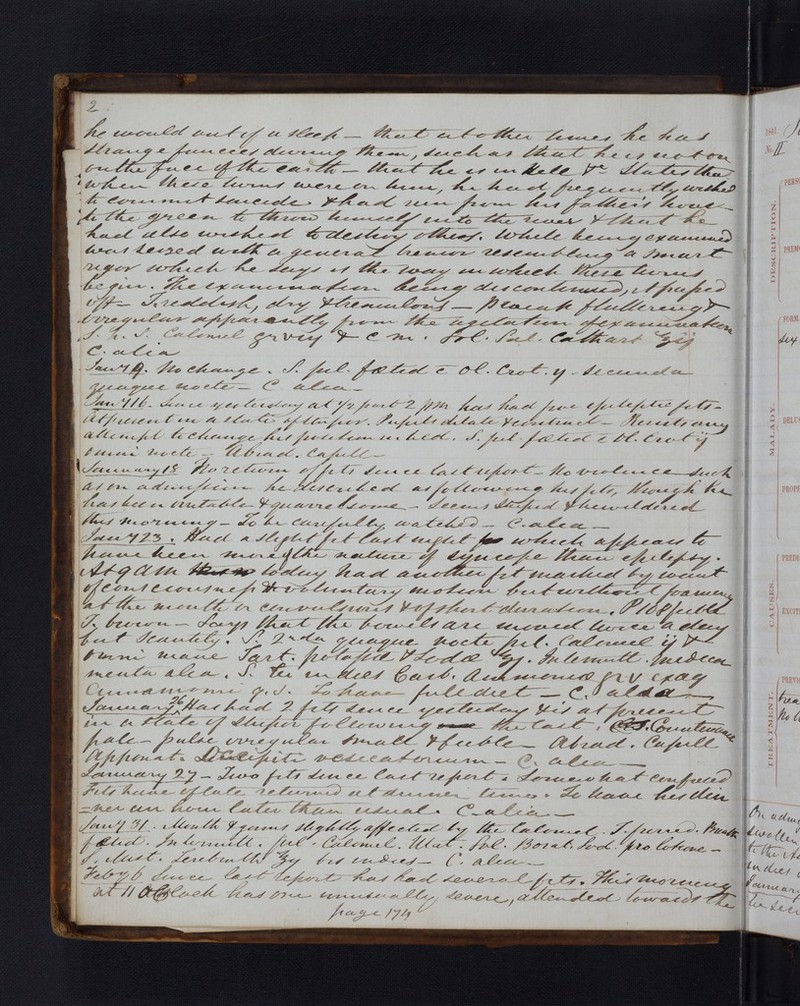 2
he would out of a sleep – that at other times he has
strange fancies during them, such as that he is not on
on the face of the earth – that he is in Hell &c States that
when these turns were on him, he had frequently wished
to commit suicide & had run from his father's house
to the green to throw himself into the river & that he
had also wished to destroy others. While being examined
was seized with a general tremor resembling a smart
rigor which he says is the way in which these turns
begin. The examination being discontinued, it passed
off – T. reddish, dry & tremulous – Pulse fluttering &
irregular apparently from the agitation of examination
Calomel & c m. Sol. Sal. Cathart ℥ij
C. alia
Jany 14. No change. S. pil. fœtid c Ol. Crot. ij secunda
quaque nocte – C alia –
Jany 16. Since yesterday at ½ past 2 PM has had five epileptic fits –
At present in a state of stupor. Pupils dilate & contract – Resists any
attempt to change his position in bed. S. pil fœtid c Ol. Crot ij
omni nocte – Abrad. Capill –
January 18 No return of fits since last report – No violence such
as on admission he described as following his fits, though he
has been irritable & quarrelsome – Seems stupid & bewildered
this morning – To be carefully watched – C. alia –
Jany 23. Had a slight fit last night which appears to
have been more of the nature of syncope than epilepsy.
At 9 AM today had another fit marked by want
of consciousness & voluntary motion but without foaming
at the mouth or convulsions & of short duration. P 108 feeble
T. brown – Says that the bowels are moved twice a day
but scantily. S. 2nda quaque nocte pil. Calomel ij &
omni mane Tart. potassæ & Sodæ ʒij. Intermitt. medica
menta alia. S. ter in dies Carb. Ammoniæ gr v ex aq
Cinnamomi q.s. To have full diet – C. alia –
January 26 Has had 2 fits since yesterday & is at present
in a state of stupor following the last. Countenance
pale – pulse irregular small & feeble – Abrad. Capill
Apponat. Occipiti vesicatorium – C. alia –
January 27 – Two fits since last report. Somewhat confused
Fits have of late returned at dinner time. To have his din
=ner an hour later than usual. C. alia –
Jany 31. Mouth & gums slightly affected by the Calomel. T. furred. Breath
fœtid. Intermitt. pil. Calomel. Utat. Sol. Borat. Sod. pro lotione –
S. Mist. Terebinth ʒij bis indies – C. alia –
Feby 6 Since last report has had several fits. This morning
at 11 O'Clock has one unusually severe, attended towards the
page 174
1841
No. II
DESCRIPTION.
MALADY.
CAUSES.
TREATMENT.
On admi
swollen
in dies
January